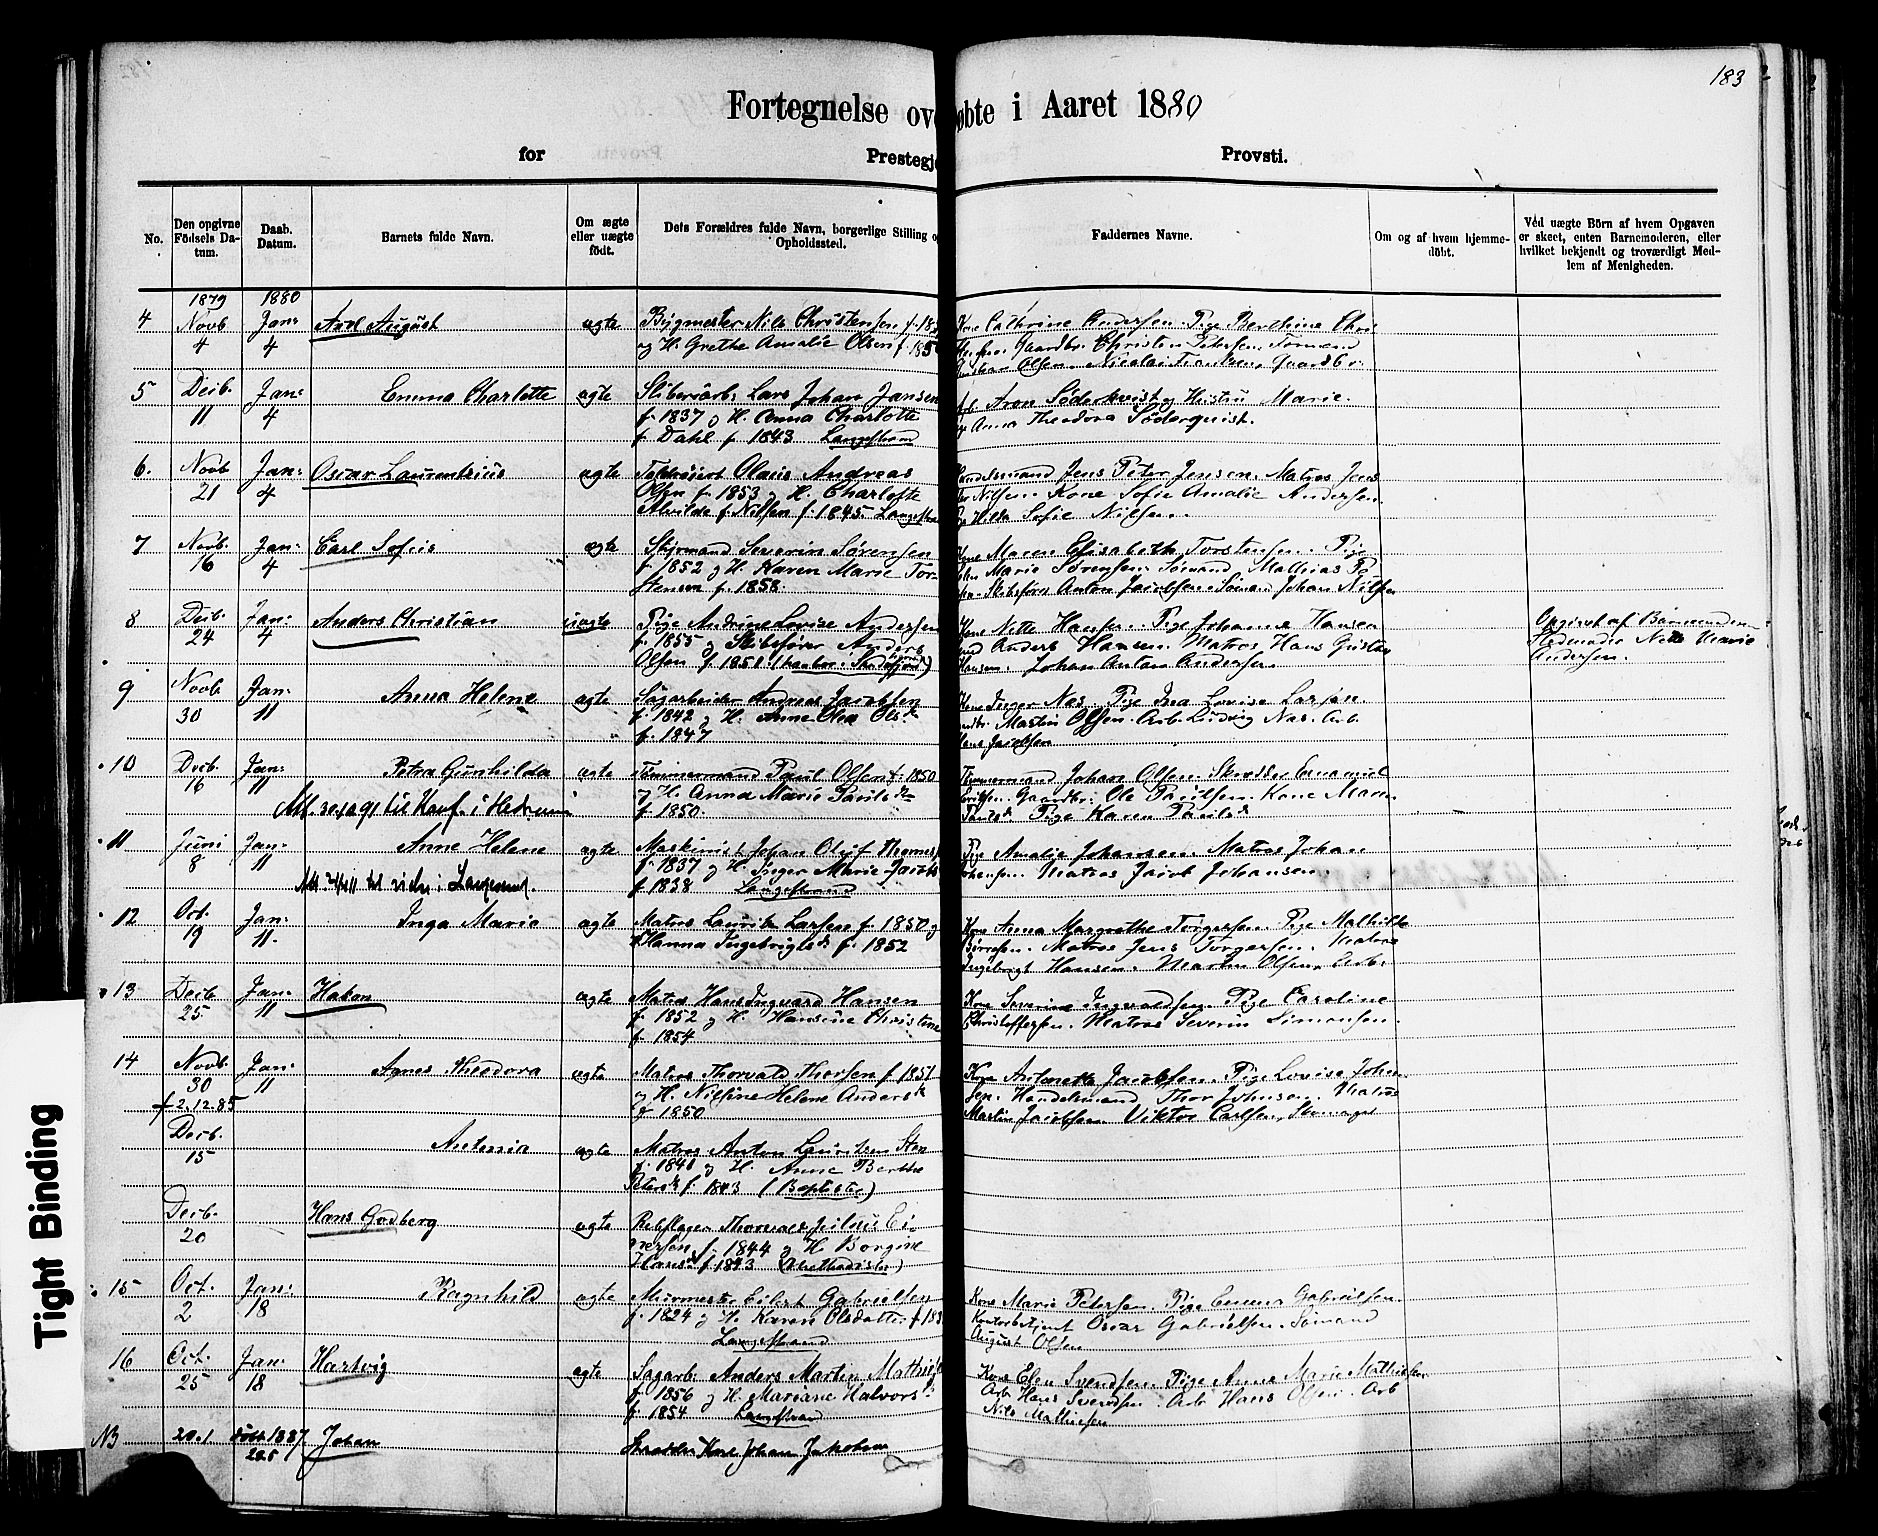 183
Fortegnelse ov øbte i Aaret 1880
for Prestegj Provsti.
No. Den opgivne Födsels Da-tum. Daab. Datum. Barnets fulde Navn. Om ægte eller uægte födt. Dets Forældres fulde Navn, borgerlige Stilling o Opholdssted. Faddernes Navne. Om og af hvem hjemme-döbt. Ved uægte Börn af hvem Opgaven er skeet, enten Barnemoderen, eller hvilket bekjendt og troværdigt Med-lem af Menigheden.
1879 1880
4 Novb 4 Jan: 4 Axel August ægte Bygmester Nils Christensen f. 18
og H. Grethe Amalie Olsen f. 185
Kone Cathrine Andersen. Pige Berthine Chri
Gaardbr. Christen Petersen, Sømand
Olsen, Nicolai Frantzen, Gaardbr.
5 Decb. 11 Jan: 4 Emma Charlotte ægte Sliberiarb. Lars Johan Jansen
f. 1837 og H. Anna Charlotte
f. Dahl f. 1843 Langestrand
Aron Söderkvist og Hustru Marie.
Anna Theodora Söderquist.
6. Novb 21 Jan: 4 Oscar Laurentzius ægte Olaus Andreas
Olsen f. 1853 og H. Charlotte
Alvilde f. Nilsen f. 1845. Langestra
Jens Peter Jensen. Matros Jens
Nilsen. Kone Sofie Amalie Andersen
Hilda Sofie Nilsen.
7 Novb. 16 Jan: 4 Carl Sofus ægte Styrmand Severin Sørensen
f. 1852 og H. Karen Marie Tor-
stensen f. 1858.
Maren Elisabeth Torstensen. Pige
Marie Sørensen. Sømand Mathias P
Skibsförer Anton Jacobsen. Sømand Johan Nilsen
8 Decb. 24 Jan: 4 Anders Christian uægte Pige Andrine Lovise Andersen
f. 1855 og Skibsfører Anders
Olsen f. 1858
Nette Hansen. Pige Johanne Hansen
Anders Hansen. Matros Hans Gustav
Hansen. Johan Anton Andersen
Opgivet af Barnemoderen
Nette Marie
Andersen.
9 Novb 30 Jan: 11 Anna Helene ægte Sagarbeider Andreas Jacobsen
f. 1842 og H. Anne Olea Ols
f. 1847
Inger Næs. Pige Ina Lovise Larsen
Martin Olsen. Arb. Ludvig Næs. Arb.
Jacobsen
10 Decb. 16 Jan: 11 Petra Gunhilda ægte Tömmermand Paul Olsen f. 1850
og H. Anna Marie Pauls
f. 1850.
Tömmermand Johan Olsen. Skrædder Emanuel
Gaardbr. Ole Paulsen. Kone Maren
Pige Karen Pauls
til Konf. i Hedrum
11 Juni 8 Jan: 11 Anne Helene ægte Maskinist Johan Oluf Thomes
f. 1837 og H. Inger Marie Jacobs
f. 1838 Langestrand
Pige Amalie Johansen. Matros Johan
Johansen. Matros Jacob Johansen.
12 Oct. 19 Jan: 11. Inga Marie ægte Matros Laurits Larsen f. 1850 og
Hanna Ingebrigtsd. f. 1852
Kone Anna Margrethe Torgersen. Pige Mathilde
Matros Jens Torgersen. Matros
Ingebrigt Hansen. Martin Olsen. Arb.
13 Decb 25 Jan: 11 Hakon ægte Matros Hans Ingvard Hansen
f. 1852 og H. Hansine Christine
f. 1854
Kone Severine Ingvaldsen. Pige Caroline
Christoffersen. Matros Severin Simonsen.
14 Novb. 30 Jan: 11 Agnes Theodora ægte Matros Thorvald Thorsen f. 1851
og H. Nilsine Helene Anders
f. 1850
† 2.12.85
Kone Antonette Jacobsen. Pige Lovise Johan
sen. Handelsmand Thor Johnsen. Matros
Martin Jacobsen Viktor Carlsen,
Decb. 15 Antonia ægte Matros Anton Lauritzen
f. 1841 og H. Anne Berthe
Peters f. 1843 (Baptister)
Decb. 20 Hans Godberg ægte Rebslager Thorvald Julius Ei-
nersen f. 1844 og H. Borgine
Hansd f. 1843 (Methodister)
15 Oct. 2 Jan: 18 Ragnhild ægte Murmester Eilert Gabrielsen
f. 1824 og H. Karen Olsdatter f. 183
Langestrand
Kone Marie Petersen. Pige Emma Gabrielsen.
Kontorbetjent Oscar Gabrielsen. Sömand
August Olsen
16 Oct. 25 Jan: 18 Hartvig ægte Sagarb. Anders Martin Mathies
f. 1856 og H. Mariane Halvors
f. 1854 Langestrand
Kone Elen Svendsen. Pige Anna Marie Mathiesen
Arb Hans Svendsen. Arb Hans Olsen. Arb
Nils Mathiesen
NB 20.1 født 1887 Johan Skrædder Karl Johan Jakobsen
Tight Binding